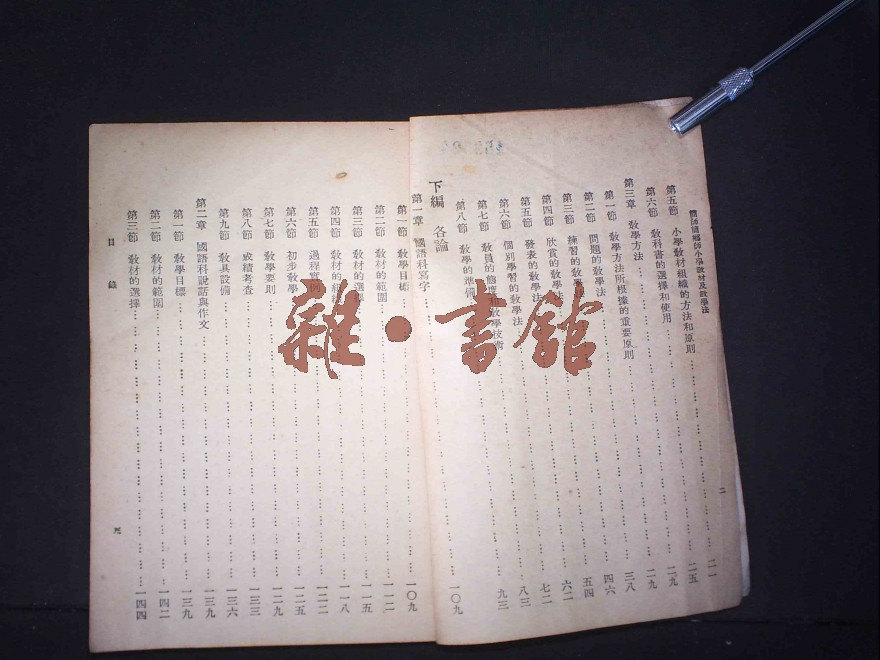 簡師簡鄉師小學教材及教學法
二
第五節 小學教材組織的方法和原則……二一
第六節 教科書的選擇和使用……二五
第三章 教學方法……二九
第一節 教學方法所根據的重要原則……二九
第二節 問題的教學法……三八
第三節 練習的教學法……四六
第四節 欣賞的教學法……五四
第五節 發表的教學法……六二
第六節 個別學習的教學法……七二
第七節 教員的態度和教學技術……八三
第八節 教學的準備……九三
下編 各論
第一章 國語科寫字……一〇九
第一節 教學目標……一〇九
第二節 教材的範圍……一一二
第三節 教材的選擇……一一五
第四節 教材的組織……一一八
第五節 過程實例……一二二
第六節 初步教學……一二五
第七節 教學要則……一二九
第八節 成績考查……一三三
第九節 教具設備……一三六
第二章 國語科說話與作文……一三九
第一節 教學目標……一三九
第二節 教材的範圍……一四二
第三節 教材的選擇……一四四
目錄
三
雜·書館